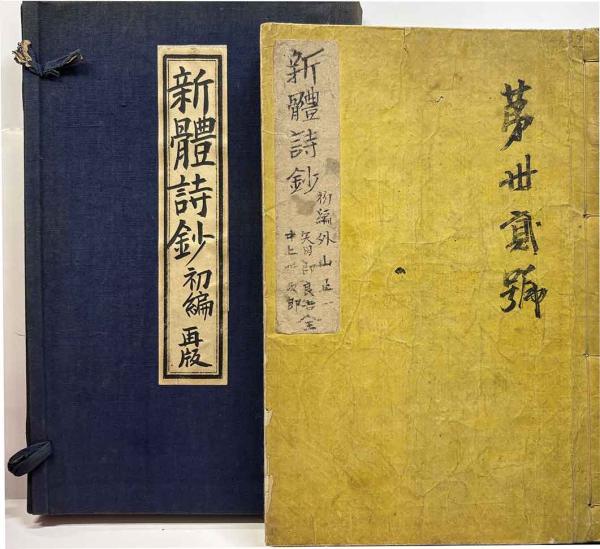 新體詩鈔 初編 再版
新體詩鈔 初編 外山正一
矢田部良吉 全
井上哲次郎
第卅貳號